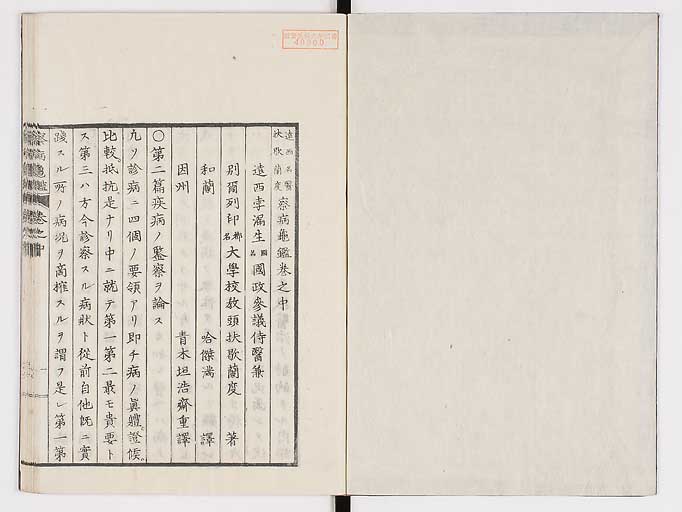 遠西名醫
扶歇蘭度 察病龜鑑卷之中
遠西孛漏生國名國政參議侍醫兼
別爾列印都名大學校教頭扶歇蘭度 著
和蘭 哈傑滿 譯
因州 青木坦浩齋重譯
〇第二篇疾病ノ監察ヲ論ス
九ソ診病ニ四個ノ要領アリ即チ病ノ眞體。證候。
比較。抵抗是ナリ中ニ就テ第一第二最モ貴要ト
ス第三ハ方今診察スル病狀ト從前自他旣ニ實
踐スル所ノ病況ヲ商搉スルヲ謂フ是レ第一第
察病龜鑑 卷之中
一
40900